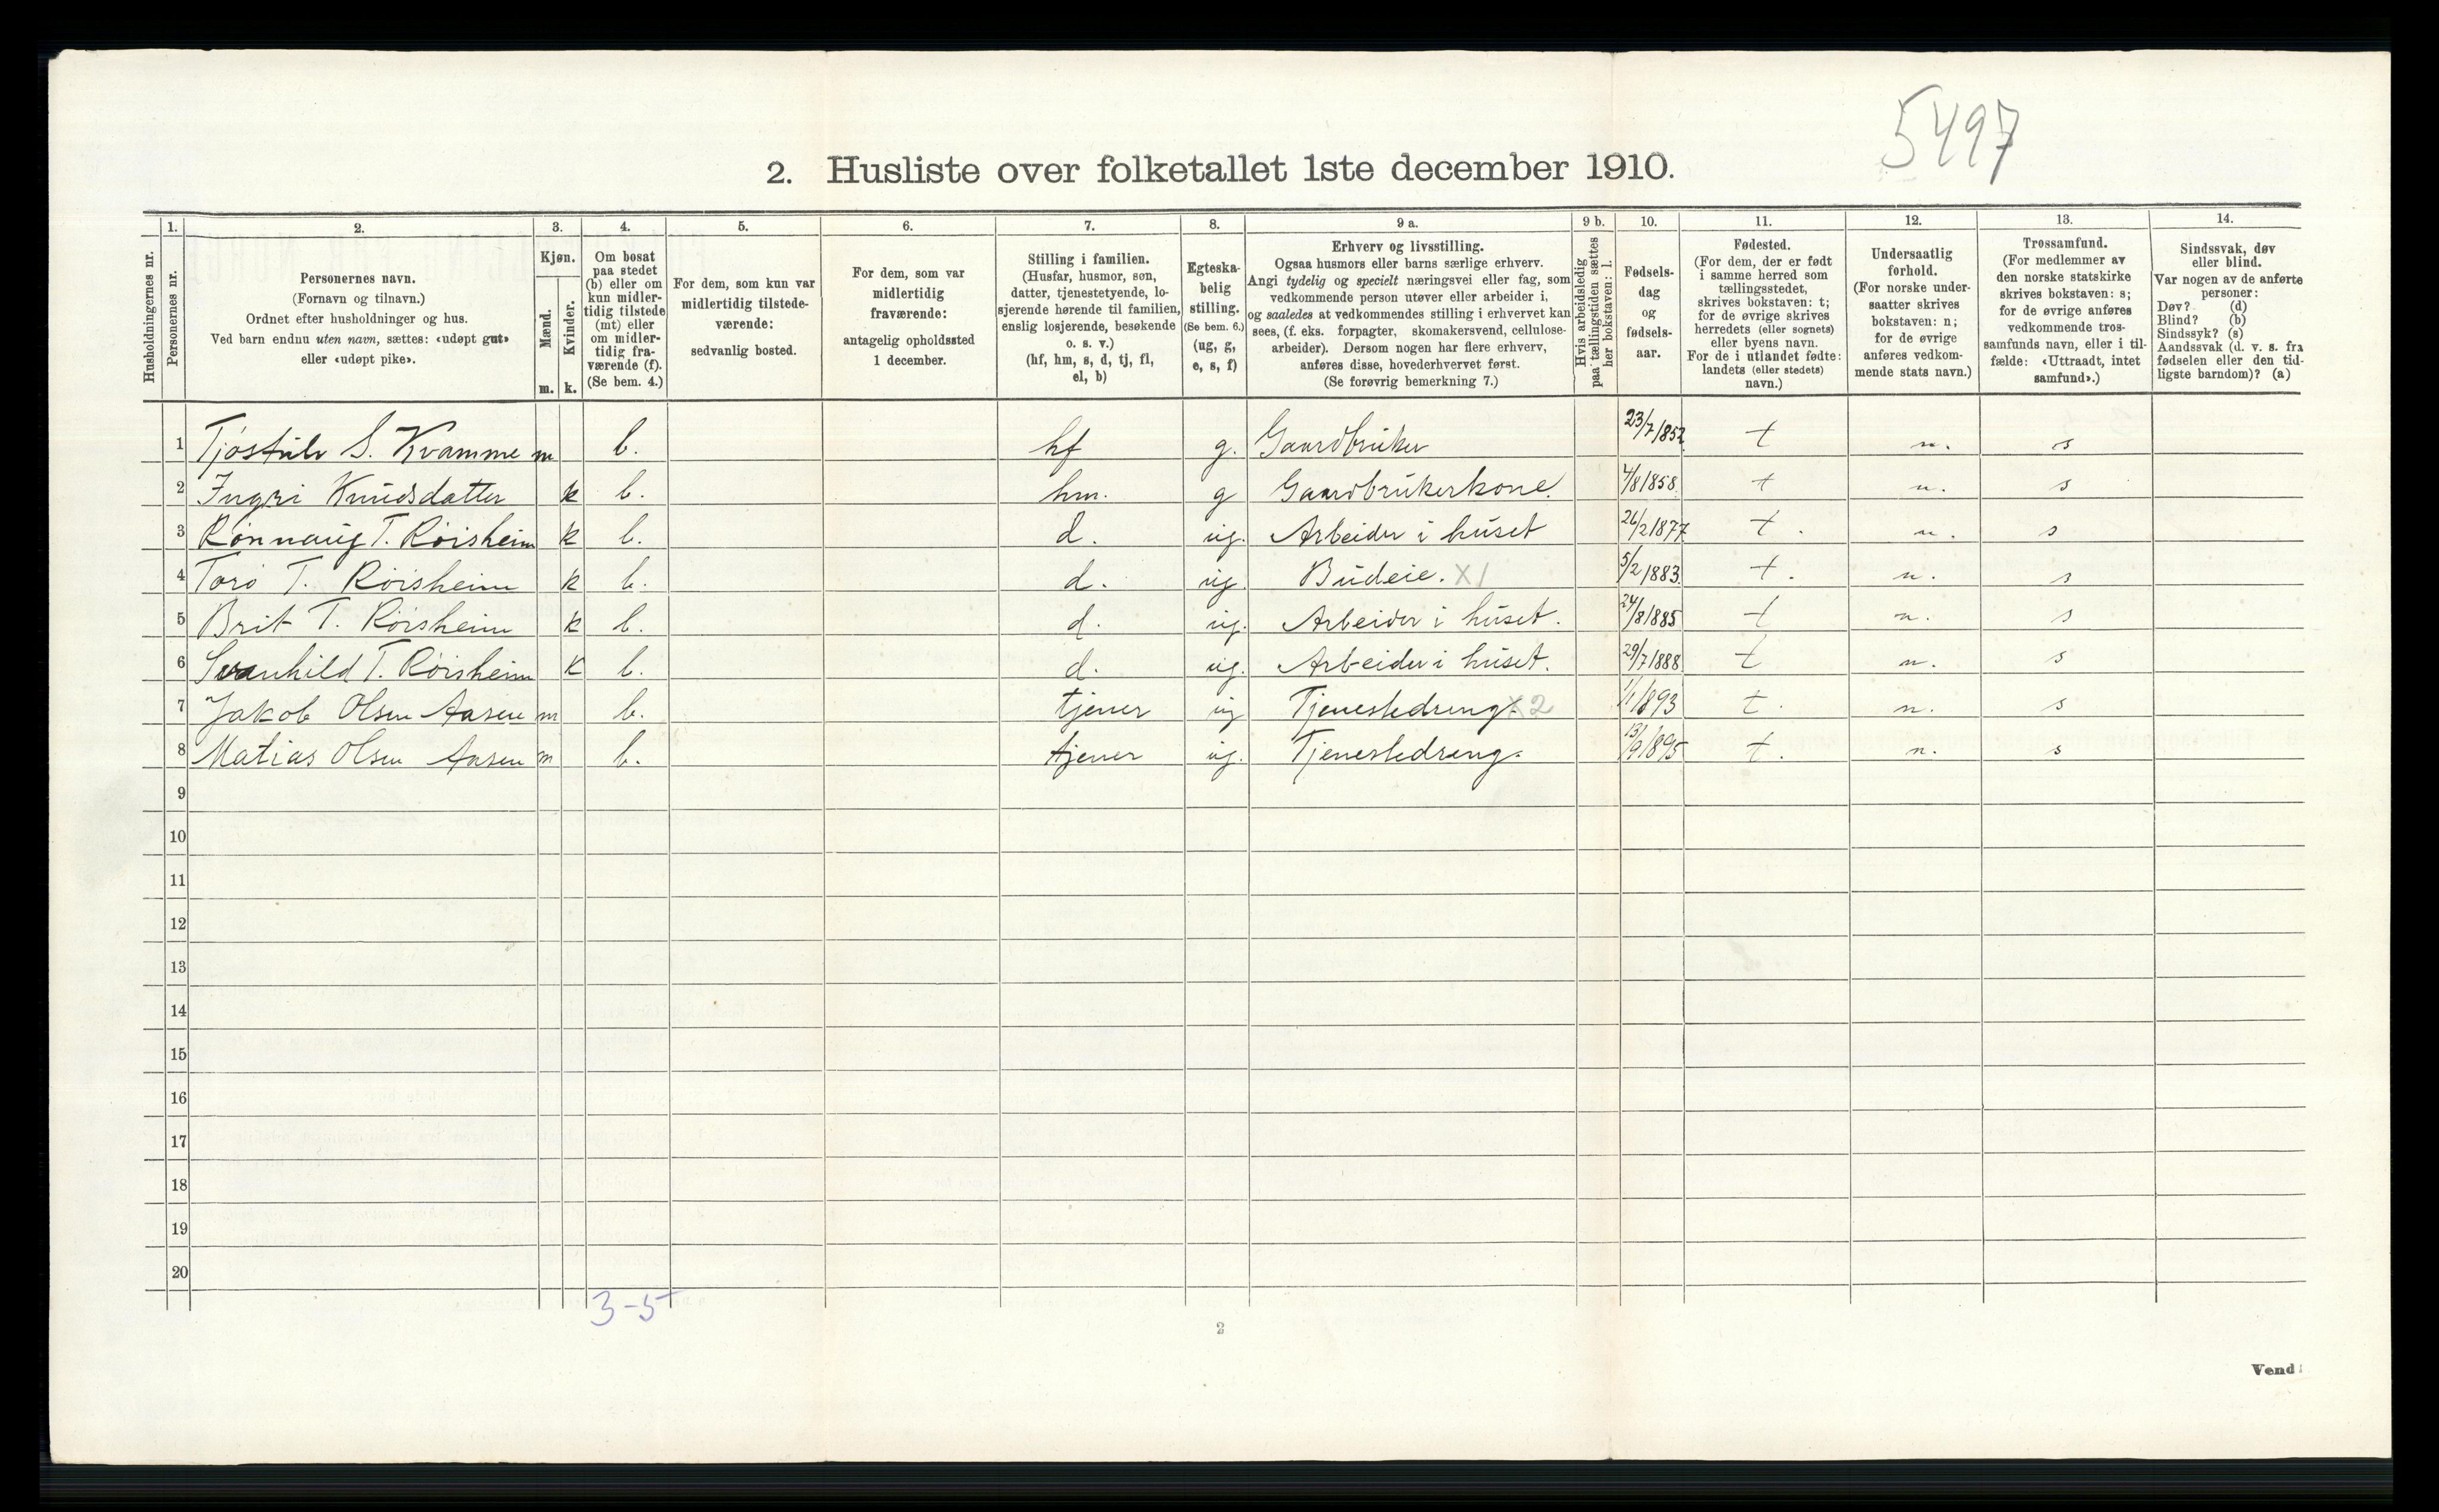 5497
2. Husliste over folketallet 1ste december 1910.
Husholdningernes nr.
1. Personernes nr.
2. Personernes navn.
(Fornavn og tilnavn.)
Ordnet efter husholdninger og hus.
Ved barn endnu uten navn, sættes: «udøpt gut»
eller «udøpt pike».
3. Kjøn.
Mænd. m.
Kvinder. k.
4. Om bosat
paa stedet
(b) eller om
kun midler-
tidig tilstede
(mt) eller
om midler-
tidig fra-
værende (f).
(Se bem. 4.)
5. For dem, som kun var
midlertidig tilstede-
værende:
sedvanlig bosted.
6. For dem, som var
midlertidig
fraværende:
antagelig opholdssted
1 december.
7. Stilling i familien.
(Husfar, husmor, søn,
datter, tjenestetyende, lo-
sjerende hørende til familien,
enslig losjerende, besøkende
o. s. v.)
(hf, hm, s, d, tj, fl,
el, b)
8. Egteska-
belig
stilling.
(Se bem. 6.)
(ug, g,
e, s, f)
9 a. Erhverv og livsstilling.
Ogsaa husmors eller barns særlige erhverv.
Angi tydelig og specielt næringsvei eller fag, som
vedkommende person utøver eller arbeider i,
og saaledes at vedkommendes stilling i erhvervet kan
sees, (f. eks. forpagter, skomakersvend, cellulose-
arbeider). Dersom nogen har flere erhverv,
anføres disse, hovederhvervet først.
(Se forøvrig bemerkning 7.)
9 b. Hvis arbeidsledig
paa tællingstiden sættes
her bokstaven: l.
10. Fødsels-
dag
og
fødsels-
aar.
11. Fødested.
(For dem, der er født
i samme herred som
tællingsstedet,
skrives bokstaven: t;
for de øvrige skrives
herredets (eller sognets)
eller byens navn.
For de i utlandet fødte:
landets (eller stedets)
navn.)
12. Undersaatlig
forhold.
(For norske under-
saatter skrives
bokstaven: n;
for de øvrige
anføres vedkom-
mende stats navn.)
13. Trossamfund.
(For medlemmer av
den norske statskirke
skrives bokstaven: s;
for de øvrige anføres
vedkommende tros-
samfunds navn, eller i til-
fælde: «Uttraadt, intet
samfund».)
14. Sindssvak, døv
eller blind.
Var nogen av de anførte
personer:
Døv? (d)
Blind? (b)
Sindssyk? (s)
Aandssvak (d. v. s. fra
fødselen eller den tid-
ligste barndom)? (a)
1 Tjøstulv S. Kvamme m b. hf g. Gaardbruker 23/7/1852 t n. s
2 Ingri Knudsdatter k b. hm. g Gaardbrukerkone. 4/8 1858 t n. s
3 Rønnaug T. Røisheim k b. d. ug. Arbeider i huset 26/2 1877 t. n. s
4 Torø T. Røisheim k b. d. ug. Budeie. X1 5/2 1883. t. n. s
5 Brit T. Røisheim k b. d. ug. Arbeider i huset. 24/8 1885 t n. s
6 Svanhild T. Røisheim k b. d. ug. Arbeider i huset. 29/7 1888. t n. s
7 Jakob Olsen Aasen m b. tjener ug Tjenestedreng. X2 1/1 1893 t. n. s
8 Matias Olsen Aasen m b. tjener ug. Tjenestedreng. 13/9 1895 t. n. s
9
10
11
12
13
14
15
16
17
18
19
20
3-5
2
Vend!